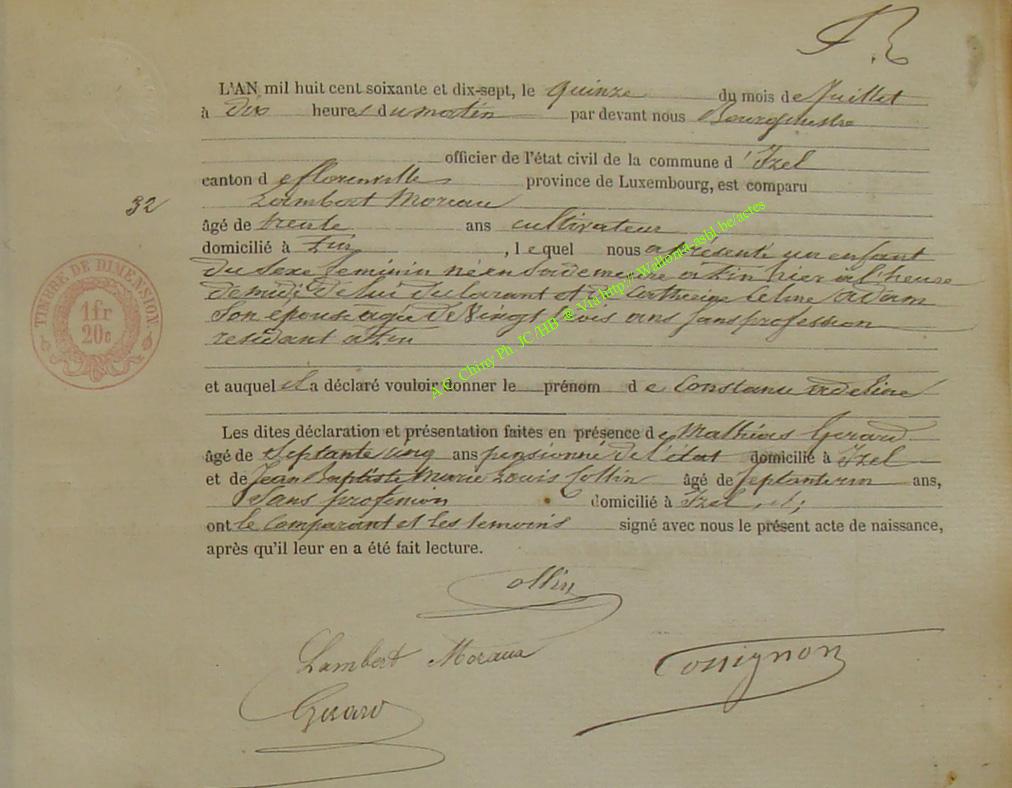 L'AN mil huit cent soixante et dix-sept, le quinze du mois de Juillet
à Dix heures du matin par devant nous Bourgmestre
officier de l'état civil de la commune d'Izel
canton de florenville province de Luxembourg, est comparu
32
Lambert Moreau
âgé de trente ans cultivateur
domicilié à , lequel nous a présenté un enfant
du sexe feminin né en sa demeure hier à l'heure
de midi de lui declarant et de Catherine Celine adam
Son épouse agée de Vingt trois ans sans profession
residant à
TIMBRE DE DIMENSION.
1fr
20c
et auquel il a déclaré vouloir donner le prénom de Constance adeline
Les dites déclaration et présentation faites en présence de Mathias Gerard
âgé de Septante cinq ans pensionné de l'état domicilié à Izel
et de Jean Baptiste Marie Louis Collin âgé de septante un ans,
Sans profession domicilié à Izel, et
ont le comparant et les temoins signé avec nous le présent acte de naissance,
après qu'il leur en a été fait lecture.
Collin
Lambert Moraux
Cossignon
Gerard
A.C. Chiny Ph. JC /HB @ Via http://Wallonia-asbl.be/actes